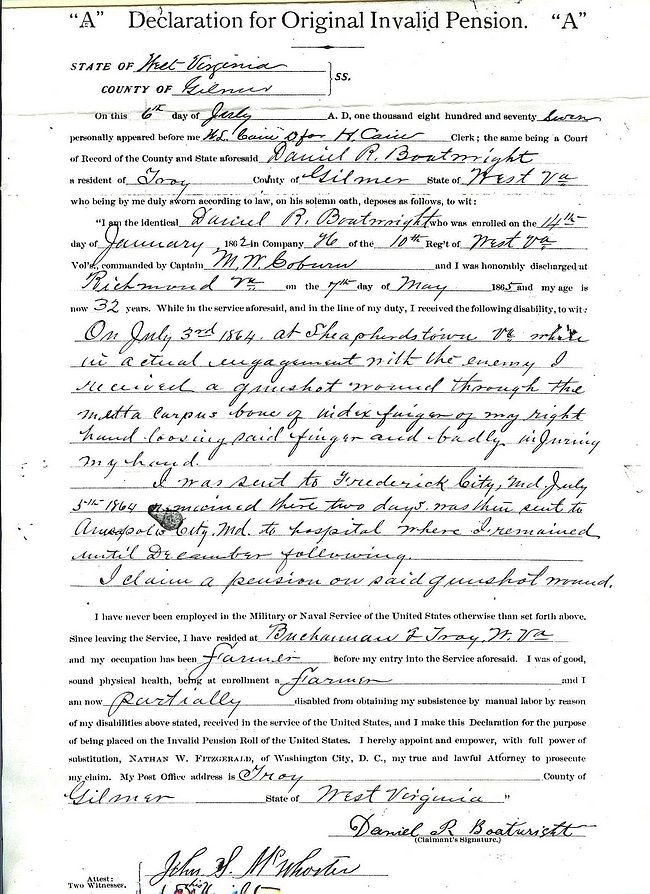 "A" Declaration for Original Invalid Pension. "A"
STATE OF West Virginia
COUNTY OF Gilmer } SS.
On this 6th day of July A. D, one thousand eight hundred and seventy Seven
personally appeared before me Clerk; the same being a Court
of Record of the County and State aforesaid Daniel R. Boatwright
a resident of Troy County of Gilmer State of West Va
who being by me duly sworn according to law, on his solemn oath, deposes as follows, to wit:
"I am the identical Daniel R. Boatwright who was enrolled on the 14th
day of January, 1862 in Company of the 10th Reg't of West Va
Vol's, commanded by Captain M. W. Coburn and I was honorably discharged at
Richmond Va on the 7th day of May 1865 and my age is
now 32 years. While in the service aforesaid, and in the line of my duty, I received the following disability, to wit:
On July 3rd 1864. at Sheapherdstown Va while
in actual engagement with the enemy I
received a gunshot wound through the
metta carpus bone of index finger of my right
hand loosing said finger and badly injuring
my hand.
I was sent to Frederick City, Md July
5th 1864 remained there two days. was then sent to
City, Md. to hospital where I remained
until December following.
I claim a pension on said gunshot wound.
I have never been employed in the Military or Naval Service of the United States otherwise than set forth above.
Since leaving the Service, I have resided at Buchannan & Troy, W. Va
and my occupation has been Farmer before my entry into the Service aforesaid. I was of good,
sound physical health, being at enrollment a Farmer and I
am now partially disabled from obtaining my subsistence by manual labor by reason
of my disabilities above stated, received in the service of the United States, and I make this Declaration for the purpose
of being placed on the Invalid Pension Roll of the United States. I hereby appoint and empower, with full power of
substitution, NATHAN W. FITZGERALD, of Washington City, D. C., my true and lawful Attorney to prosecute
my claim. My Post Office address is Troy County of
Gilmer State of West Virginia "
Daniel R Boatwright
(Claimant's Signature.)
Attest: John S. McWhorter
Two Witnesses.